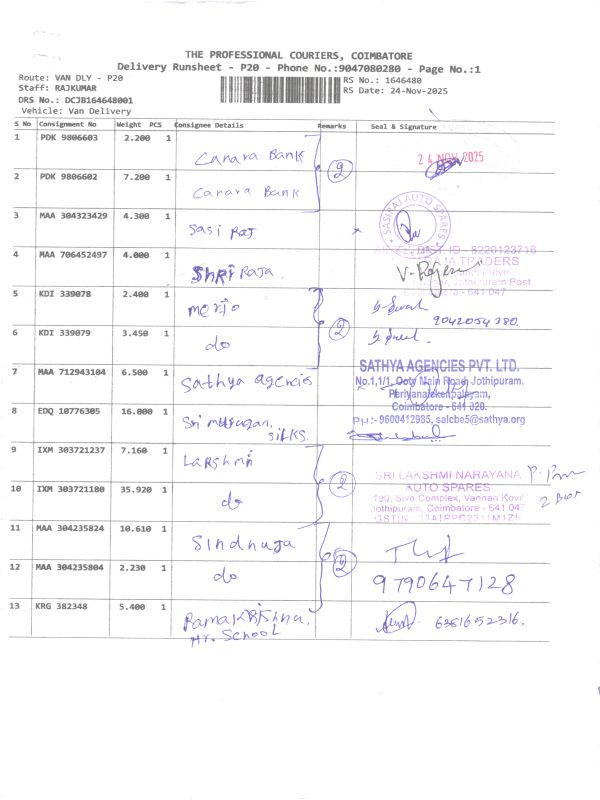 THE PROFESSIONAL COURIERS, COIMBATORE
Delivery Runsheet - P20 - Phone No.:9047080280 - Page No.:1
Route: VAN DLY - P20
Staff: RAJKUMAR
DRS No.: DCJB164648001
Vehicle: Van Delivery
RS No.: 1646480
RS Date: 24-Nov-2025
S No Consignment No Weight PCS Consignee Details Remarks Seal & Signature
1 PDK 9806603 2.200 1 Canara Bank 2 24 NOV 2025
2 PDK 9806602 7.200 1 Canara Bank
3 MAA 304323429 4.300 1 Sasi Raj SASIRAJ AUTO SPARES
4 MAA 706452497 4.000 1 Shri Raja DIST. ID - 8220123716
TRADERS
Jothipuram Post
641 047
5 KDI 339078 2.400 1 2 9042054380
6 KDI 339079 3.450 1 do
7 MAA 712943104 6.500 1 Sathya Agencies SATHYA AGENCIES PVT. LTD.
No.1,1/1, Ooty Main Road, Jothipuram,
Periyanaickenpalayam,
Coimbatore - 641 020.
8 EDQ 10776305 16.000 1 Sri murugan silks. PH:- 9600412985, salcbe5@sathya.org
9 IXM 303721237 7.160 1 Lakshmi 2 SRI LAKSHMI NARAYANA
AUTO SPARES
10 IXM 303721180 35.920 1 do Siva Complex, Vannan Kovil
Jothipuram, Coimbatore - 641 047
2 Box
11 MAA 304235824 10.610 1 Sindhuja 2
12 MAA 304235804 2.230 1 do 9790647128
13 KRG 382348 5.400 1 Ramakrishna Hr. School 6361652316.